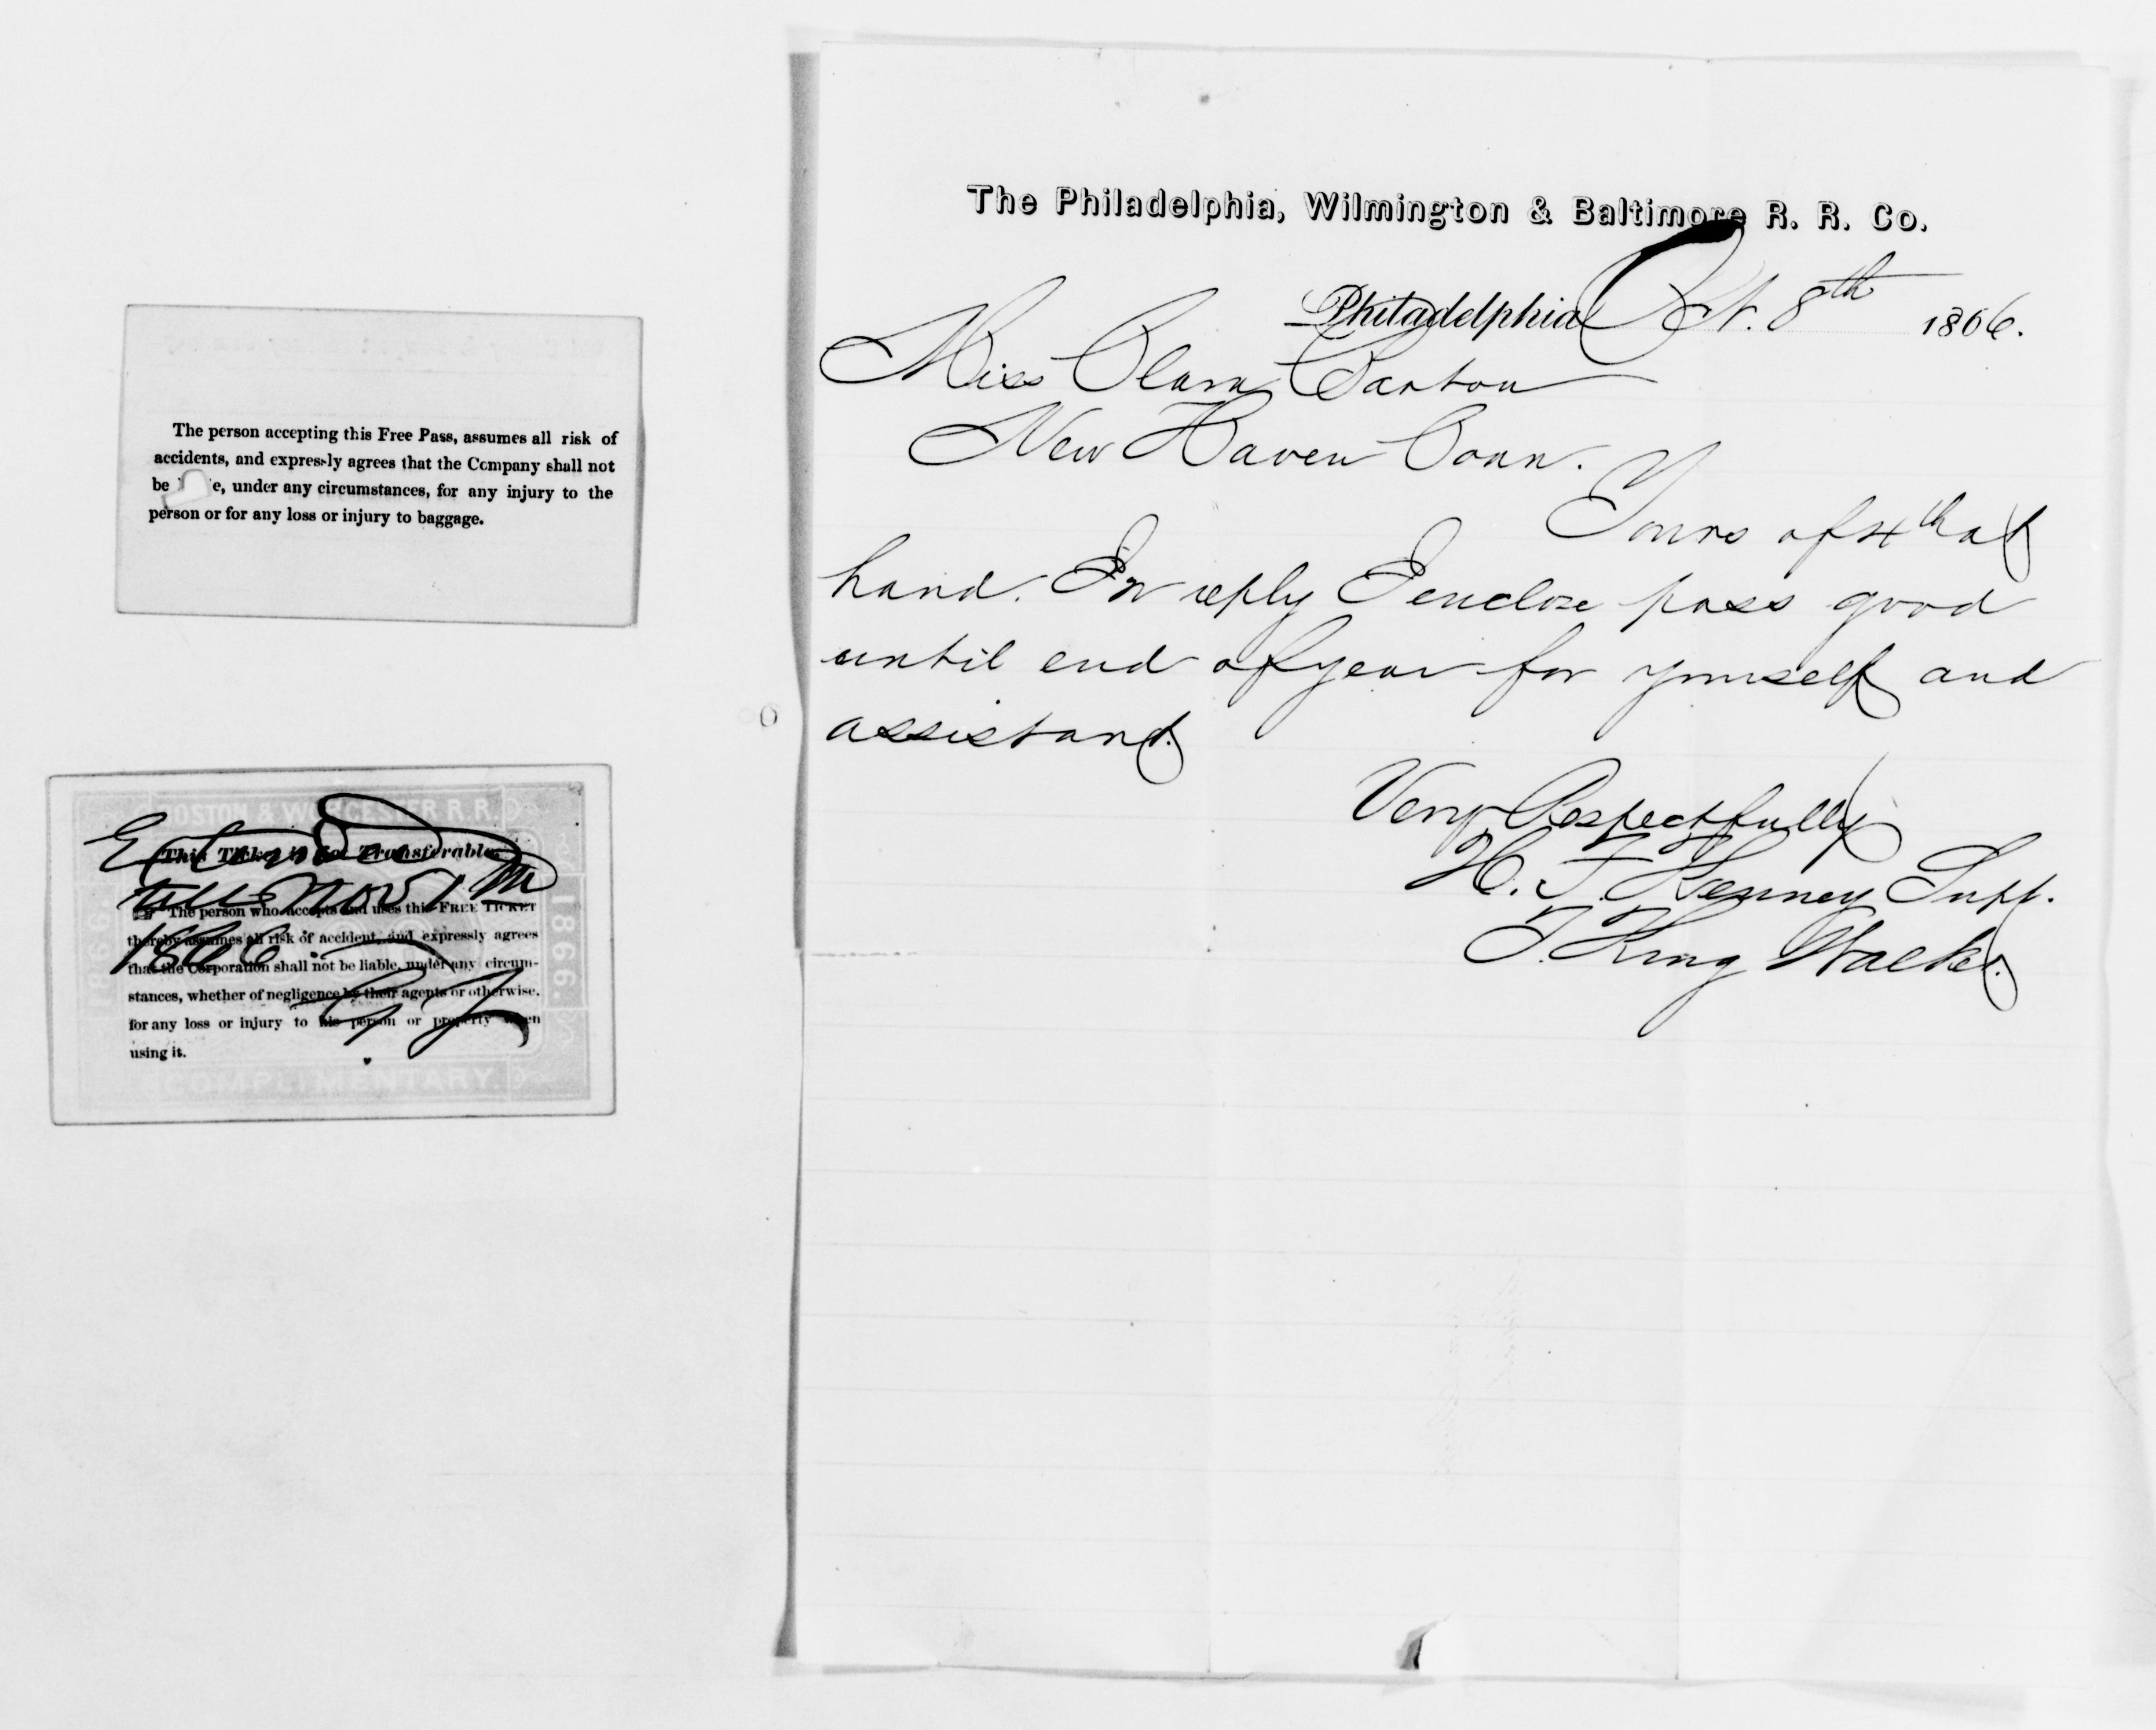 The person accepting this Free Pass, assumes all risk of
accidents, and expressly agrees that the Company shall not
be e, under any circumstances, for any injury to the
person or for any loss or injury to baggage.
BOSTON & WORCESTER R.R.
This Ticket is not Transferable.
Extended
till Nov 1st
1866.
The person who accepts and uses this FREE TICKET
thereby assumes all risk of accident, and expressly agrees
that the Corporation shall not be liable, under any circum-
stances, whether of negligence by their agents or otherwise,
for any loss or injury to his person or property when
using it.
1866.
1866.
COMPLIMENTARY.
The Philadelphia, Wilmington & Baltimore R. R. Co.
Philadelphia Oct. 8th 1866.
Miss Clara Barton
New Haven Conn.
Yours of 4th at
hand. In reply I enclose pass good
until end of year for yourself and
assistant.
Very Respectfully
H. F. Kenney Supt.
T. King Walker